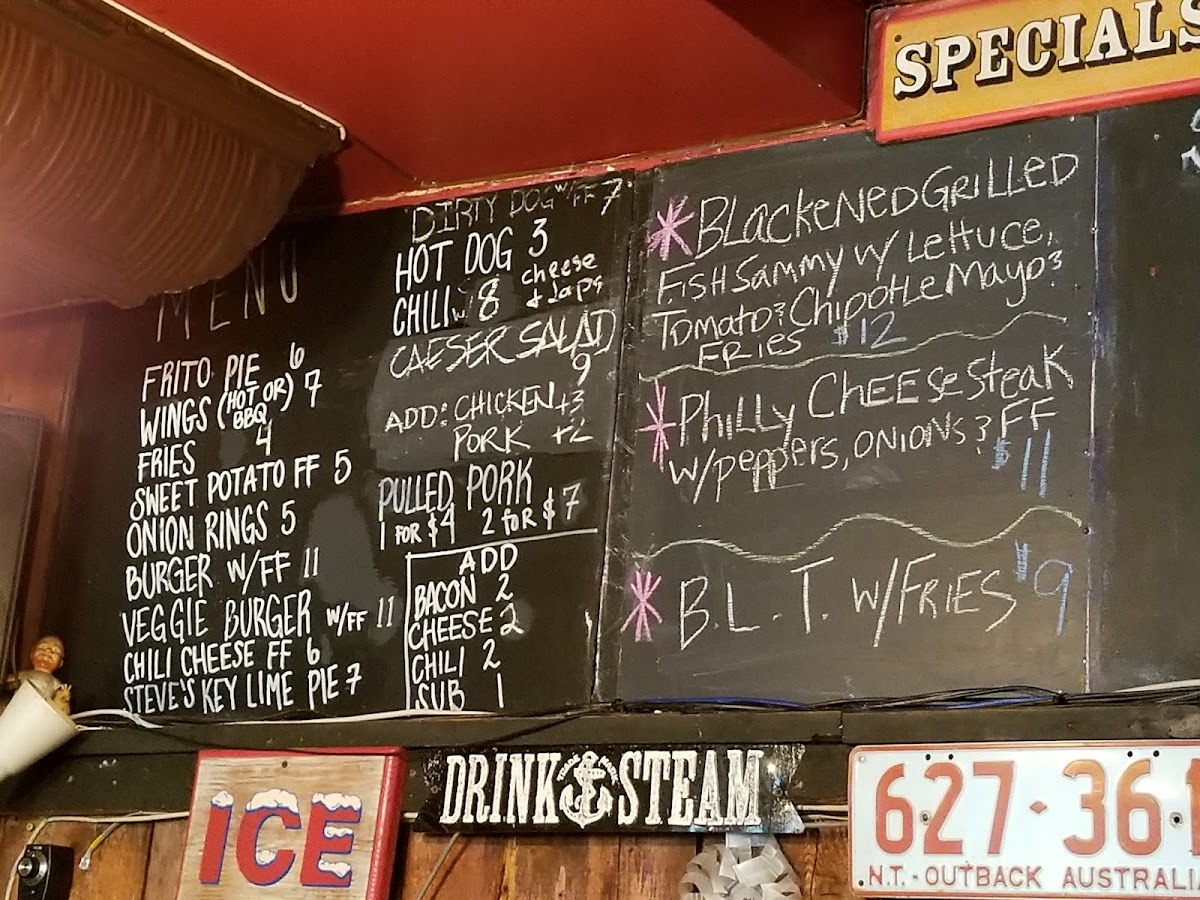 MENU
FRITO PIE 6
WINGS (HOT OR) 7
BBQ
FRIES 4
SWEET POTATO FF 5
ONION RINGS 5
BURGER W/FF 11
VEGGIE BURGER W/FF 11
CHILI CHEESE FF 6
STEVE'S KEY LIME PIE 7
DIRTY DOG W/FF 7
HOT DOG 3
CHILI w/ 8 cheese
+ Japs
CAESER SALAD
9
ADD: CHICKEN +3
PORK +2
PULLED PORK
1 FOR $4 2 FOR $7
ADD
BACON 2
CHEESE 2
CHILI 2
SUB 1
SPECIALS
*BLackeNeD GriLLeD
FishSammy w/ Lettuce,
Tomato & Chipotle Mayo &
Fries $12
*PhiLLy CheeseSteak
w/peppers, onions & FF
$11
*B.L.T. w/Fries $9
ICE
DRINK STEAM
627·361
N.T. - OUTBACK AUSTRALIA